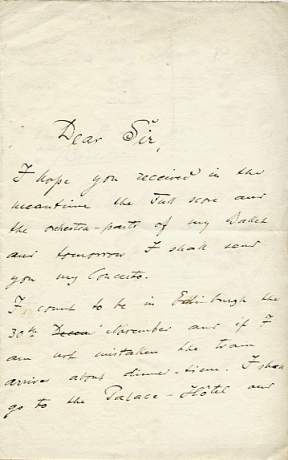 Dear Sir,
I hope you received in the
meantime the full score and
the orchestra-parts of my Ballet
and tomorrow I shall send
you my Concerto.
I count to be in Edinburgh the
30th November and if I
am not mistaken the train
arrives about dinner-time. I shall
go to the Palace-Hôtel and